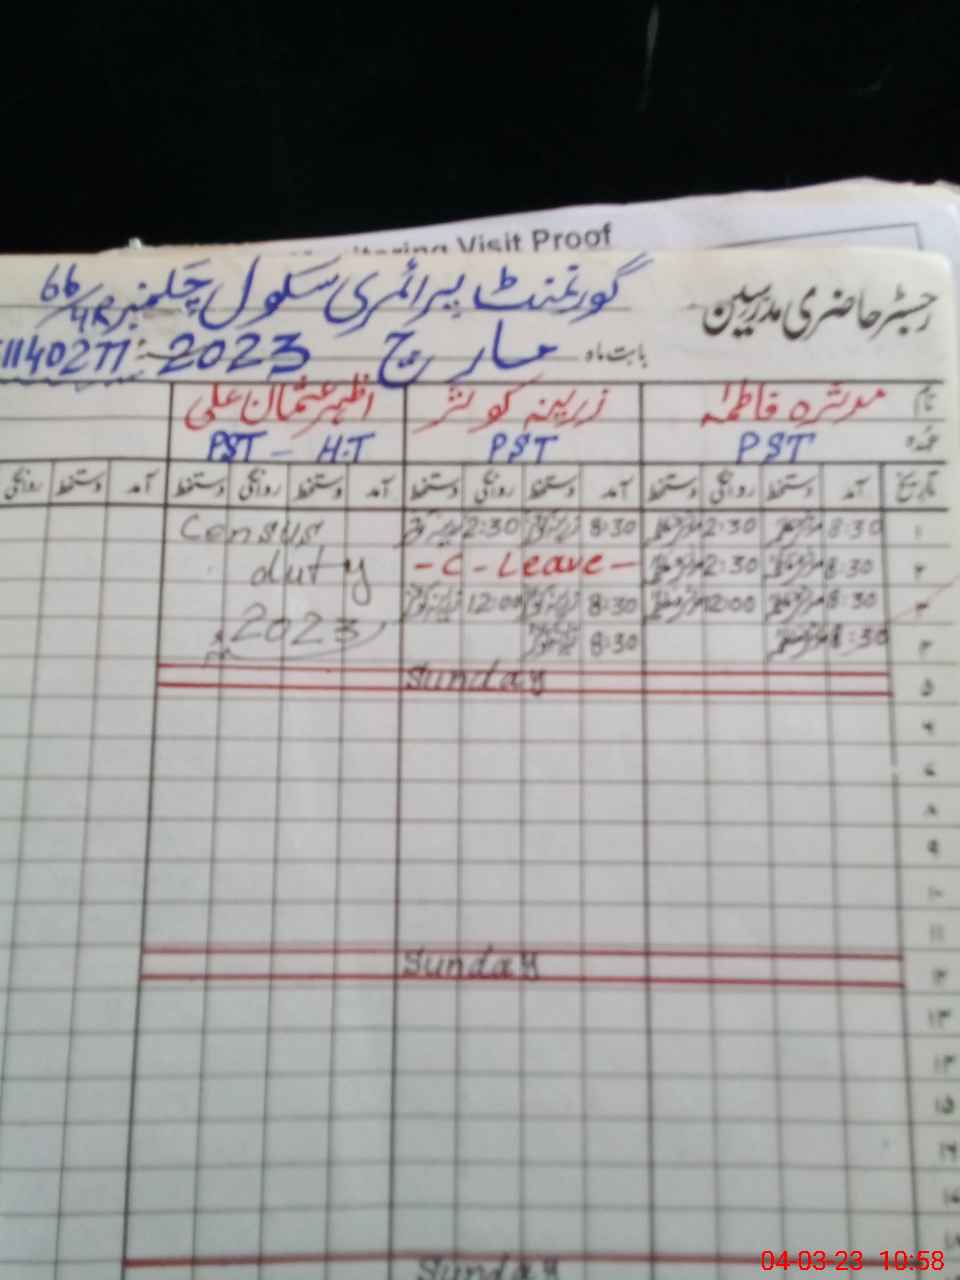 Visit Proof
رجسٹر حاضری مدرسین
گورنمنٹ پرائمری سکول چک نمبر 66/4R
بابت ماہ مارچ 2023
نام مدثرہ فاطمہ زرینہ کوثر اظہر عثمان علی
عہدہ PST PST PST - H.T
تاریخ آمد دستخط روانگی دستخط آمد دستخط روانگی دستخط آمد دستخط روانگی دستخط آمد دستخط روانگی
۱ 8:30 2:30 8:30 2:30 Census
۲ 8:30 2:30 - C - Leave - duty
۳ 8:30 12:00 8:30 12:00 2023
۴ 8:30 8:30
۵ Sunday
۶
۷
۸
۹
۱۰
۱۱
۱۲ Sunday
۱۳
۱۴
۱۵
۱۶
۱۷
۱۸
Sunday
04-03-23 10:58